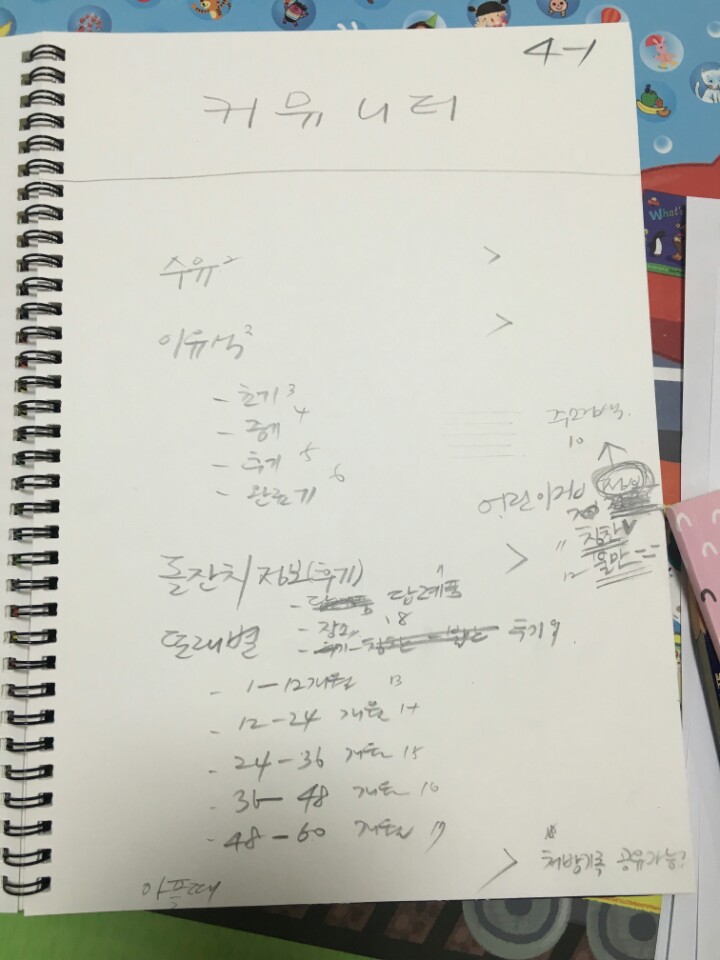 4-1
커뮤니티
수유 2 >
이유식 2 >
- 초기 3
- 중기 4
- 후기 5
- 완료기 6
10
어린이집 정보
11 칭찬 ♥
12 불만
돌잔치 정보(후기) >
- 답례품 7
- 장소 8
- 후기 9
또래별
- 1-12개월 13
- 12-24 개월 14
- 24-36 개월 15
- 36-48 개월 16
- 48-60 개월 17
아플때 > 처방기록 공유가능?
What's